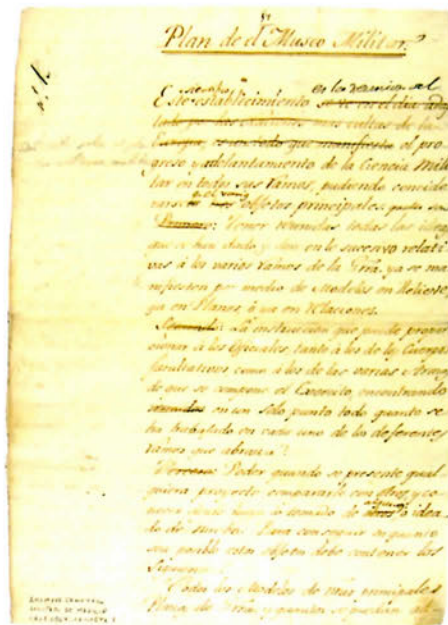 Plan de el Museo Militar.
n.º 1.
en la reunion al
Este establecimiento se ve en el dia adop
tado por las mas cultas de la
Europa, el pro
greso y adelantamiento de la Ciencia Mili
tar en todos sus Ramos, pudiendo conside
rarse objetos principales.
Primero: Tener reunidas todas las ideas
que se han dado, y den en lo sucesivo relati
vas á los varios ramos de la Grra. ya se ma
nifiesten por medio de Modelos en Relieve,
ya en Planos, ó ya en Relaciones.
Segundo: La instruccion que puede propor
cionar á los Oficiales, tanto á los de los Cuerpos
facultativos como á los de las varias Armas
de que se compone el Exercito, encontrando
reunidos en un solo punto todo quanto se
ha trabajado en cada uno de los diferentes
ramos que abraza.
Tercero: Poder quando se presente qual
quiera proyecto compararle con otros, y co
nocer si lo tomado de otros ó idea
do de Para conseguir en quanto
sea posible estos objetos debe contener los
Siguientes.
Todos los Modelos de las principales
Plazas de Grra. y quantos se puedan ad